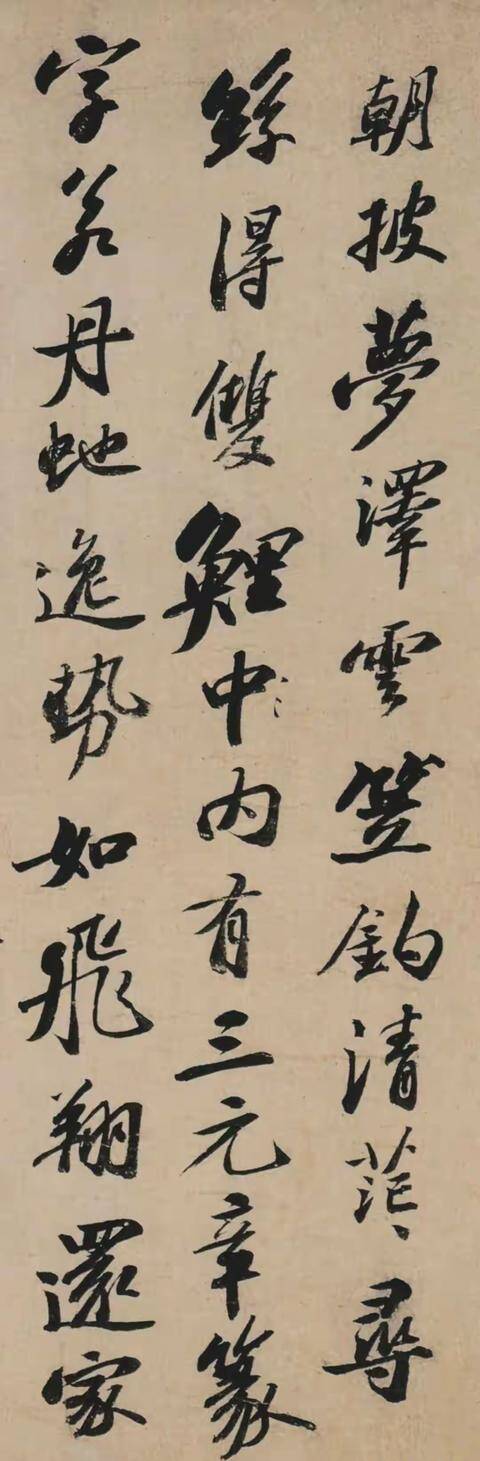 朝披夢澤雲笠釣清茫〻尋
絲得雙鯉中〻內有三元章篆
字若丹虵逸势如飛翔還家